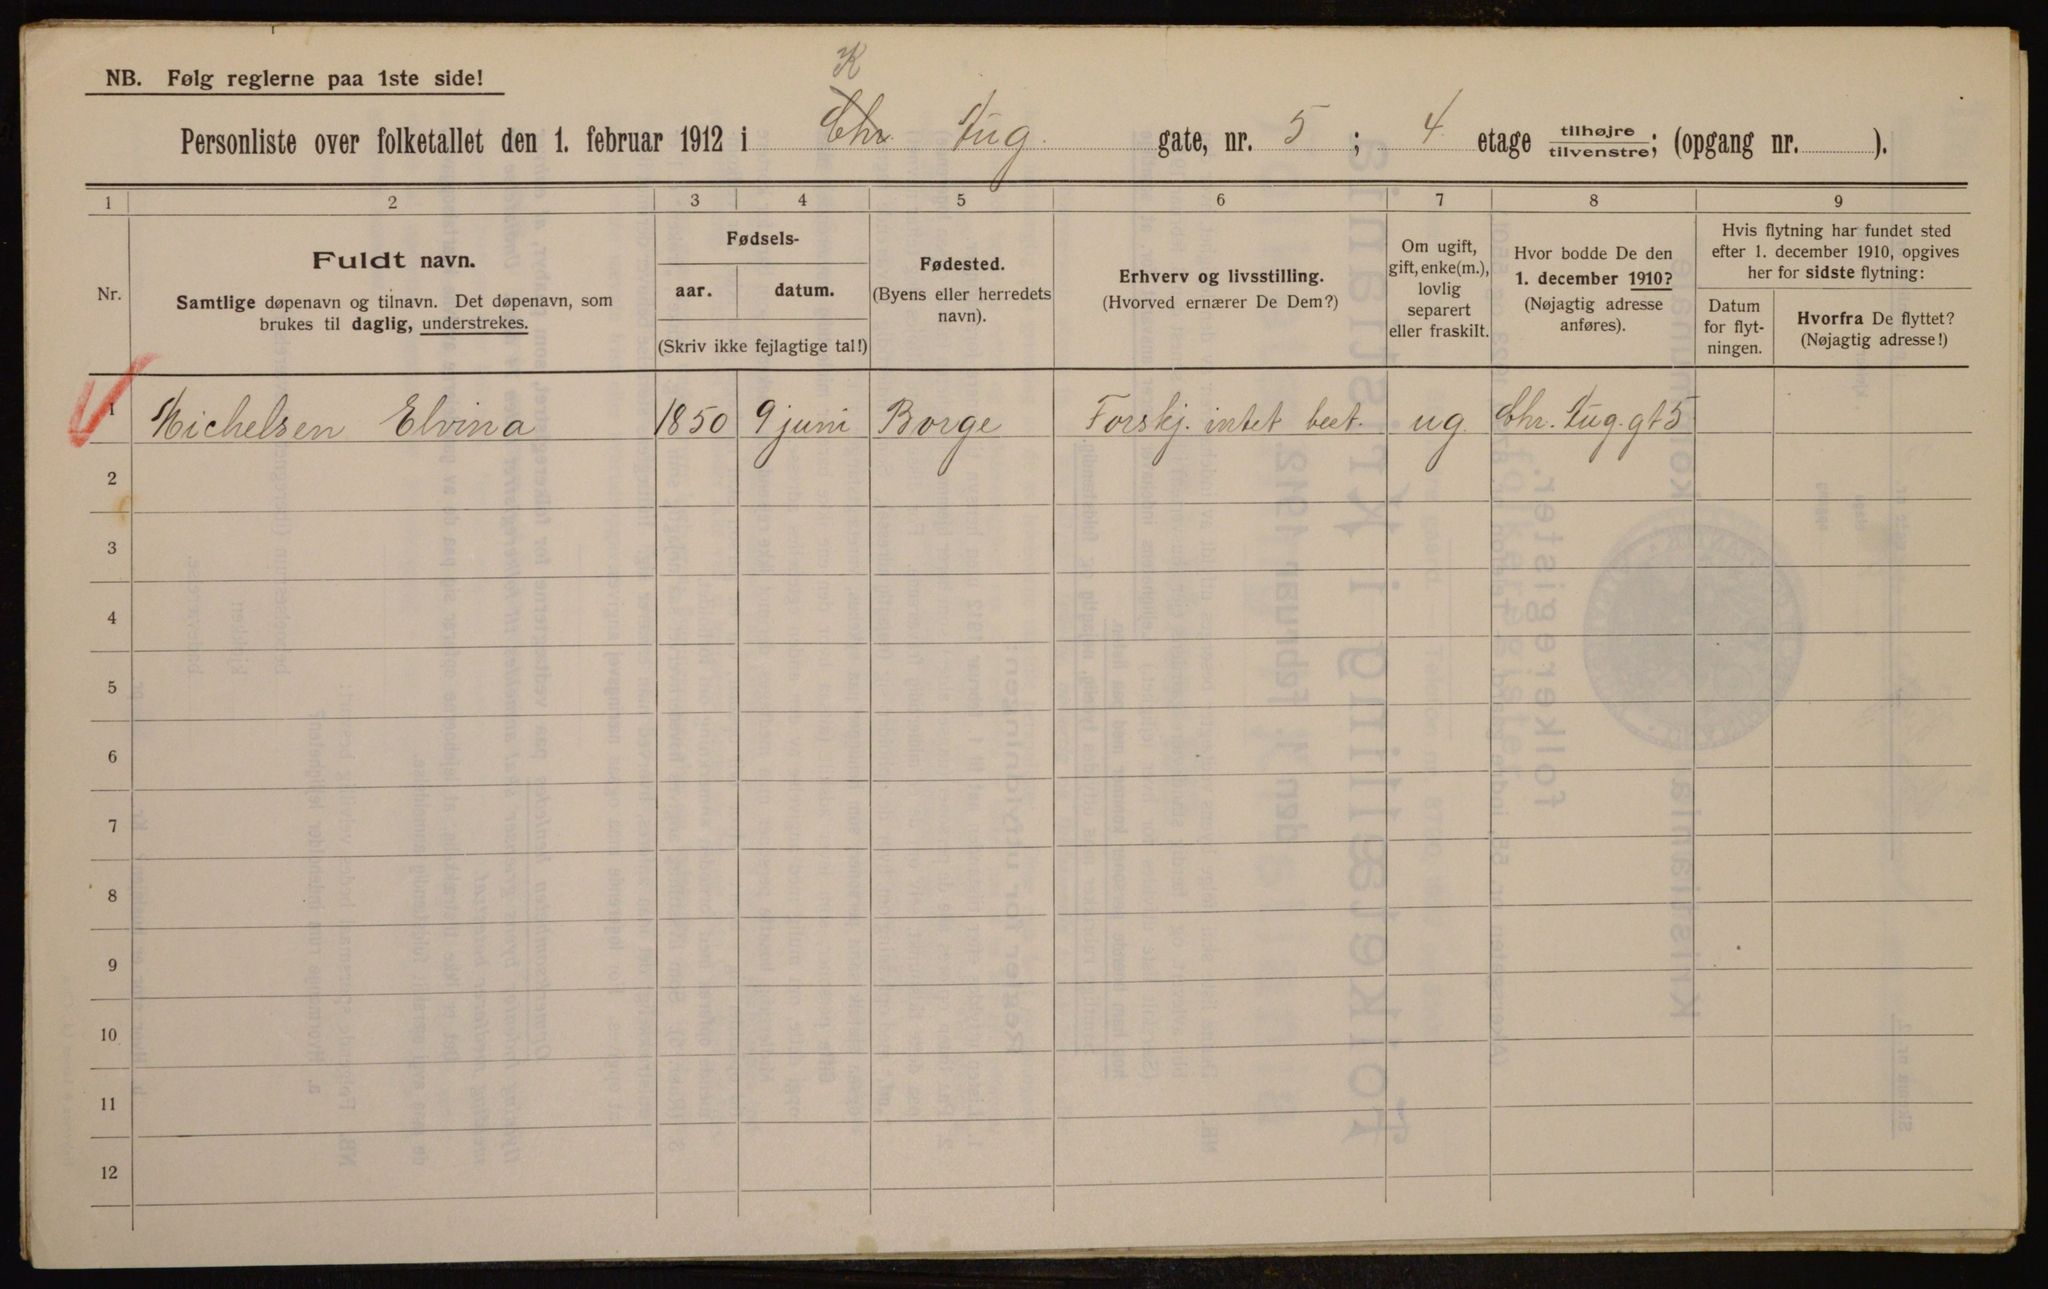 K
NB. Følg reglerne paa 1ste side!
Personliste over folketallet den 1. februar 1912 i Chr Aug. gate, nr. 5 ; 4. etage tilhøjre/tilvenstre; (opgang nr. ).
1 2 3 4 5 6 7 8 9
Nr.
Fuldt navn.
Samtlige døpenavn og tilnavn. Det døpenavn, som
brukes til daglig, understrekes.
Fødsels-
aar. datum.
(Skriv ikke fejlagtige tal!)
Fødested.
(Byens eller herredets
navn).
Erhverv og livsstilling.
(Hvorved ernærer De Dem?)
Om ugift,
gift, enke(m.),
lovlig
separert
eller fraskilt.
Hvor bodde De den
1. december 1910?
(Nøjagtig adresse
anføres).
Hvis flytning har fundet sted
efter 1. december 1910, opgives
her for sidste flytning:
Datum
for flyt-
ningen.
Hvorfra De flyttet?
(Nøjagtig adresse!)
1 Michelsen Elvina 1850 9 juni Borge Forskj. intet best. ug. Chr. Aug. gt 5
2
3
4
5
6
7
8
9
10
11
12